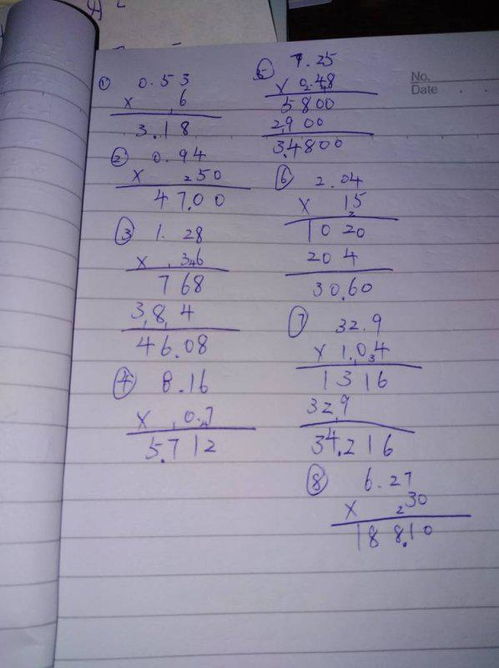 ① 0.53
× 6
3.18
② 0.94
× 50
47.00
③ 1.28
× 36
768
384
46.08
④ 8.16
× 0.7
5.712
⑤ 7.25
× 0.48
5800
2900
3.4800
⑥ 2.04
× 15
1020
204
30.60
⑦ 32.9
× 1.04
1316
329
34.216
⑧ 6.27
× 30
188.10
No.
Date